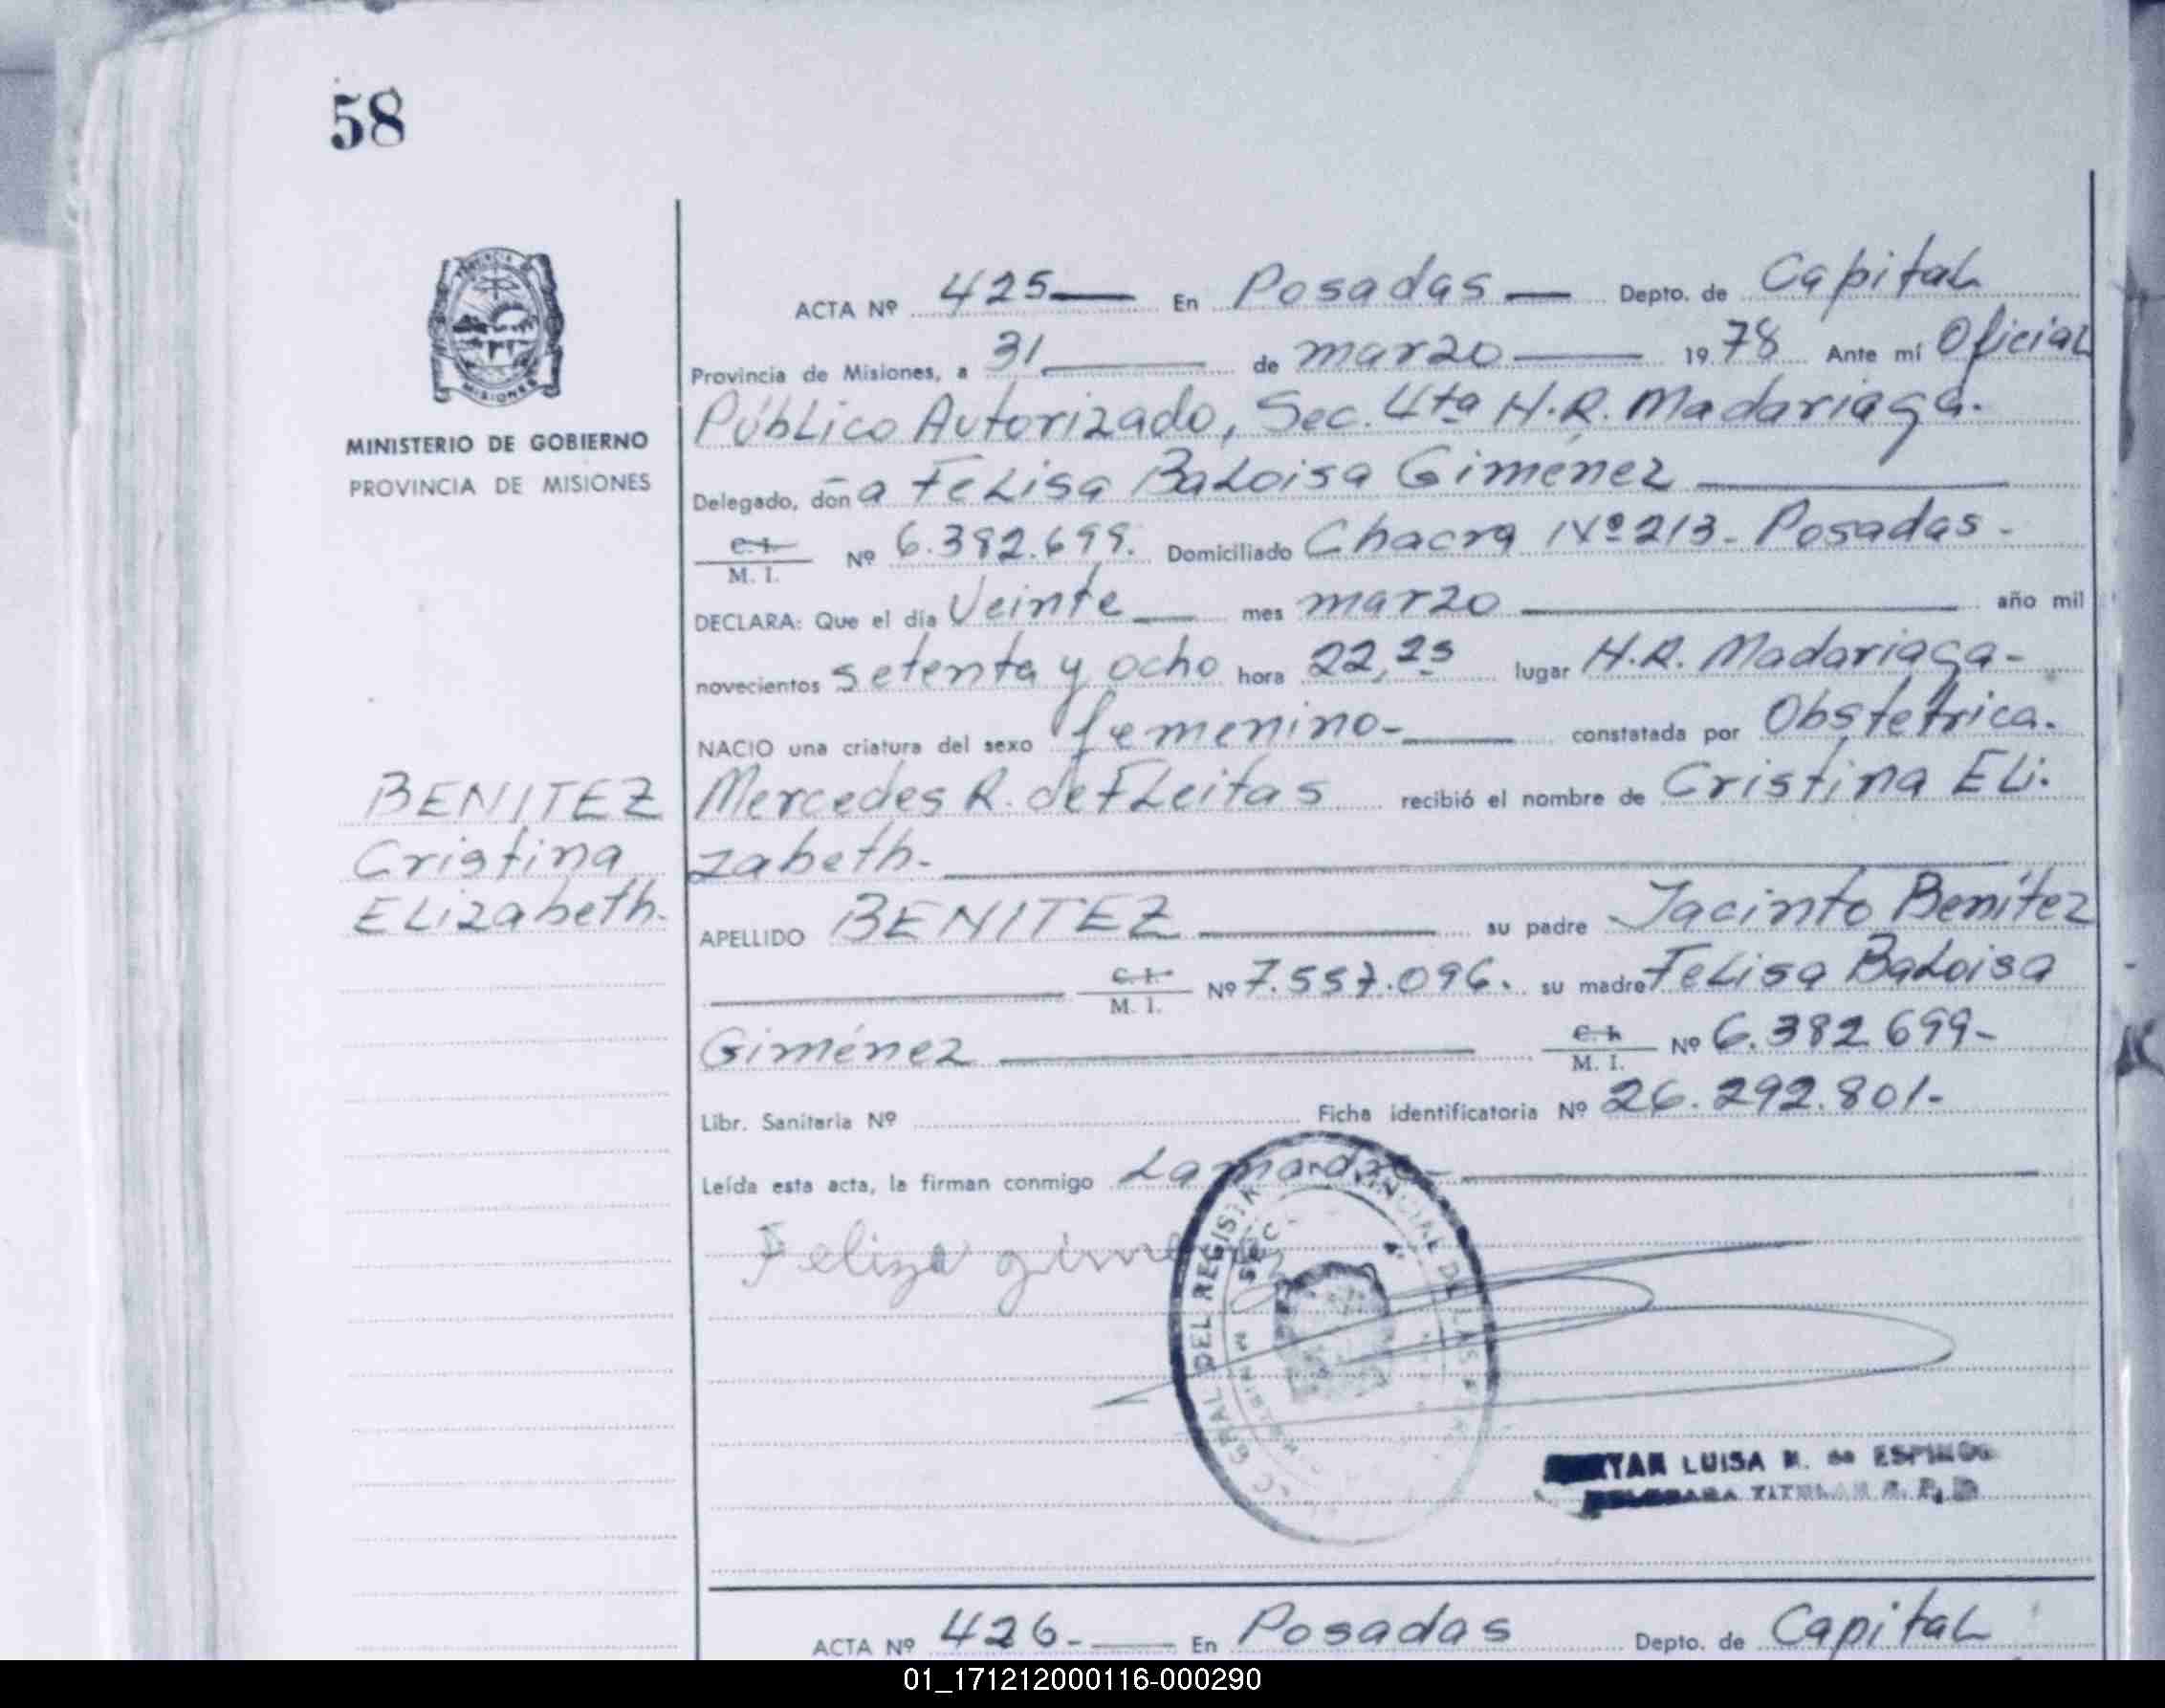 58
MINISTERIO DE GOBIERNO
PROVINCIA DE MISIONES
ACTA Nº 425 En Posadas Depto. de Capital
Provincia de Misiones, a 31 de marzo 1978 Ante mí Oficial
Público Autorizado, Sec. 4ta H.R. Madariaga.
Delegado, doña Felisa Baloisa Giménez
C. I. M. I. Nº 6.382.699. Domiciliado Chacra Nº 213- Posadas-
DECLARA: Que el día Veinte mes marzo año mil
novecientos setenta y ocho hora 22,25 lugar H.R. Madariaga-
NACIO una criatura del sexo femenino- constatada por Obstetrica.
Mercedes R. de Fleitas recibió el nombre de Cristina Eli-
zabeth-
BENITEZ
Cristina
Elizabeth.
APELLIDO BENITEZ su padre Jacinto Benítez
C. I. M. I. Nº 7.557.096. su madre Felisa Baloisa
Giménez C. I. M. I. Nº 6.382.699-
Libr. Sanitaria Nº Ficha identificatoria Nº 26.292.801-
Leída esta acta, la firman conmigo La madre-
Feliza
GRAL DEL REGISTRO PROVINCIAL DE LAS
SEC 4ª
MISIONES
LUISA M. de
TITULAR
ACTA Nº 426- En Posadas Depto. de Capital
01_171212000116-000290